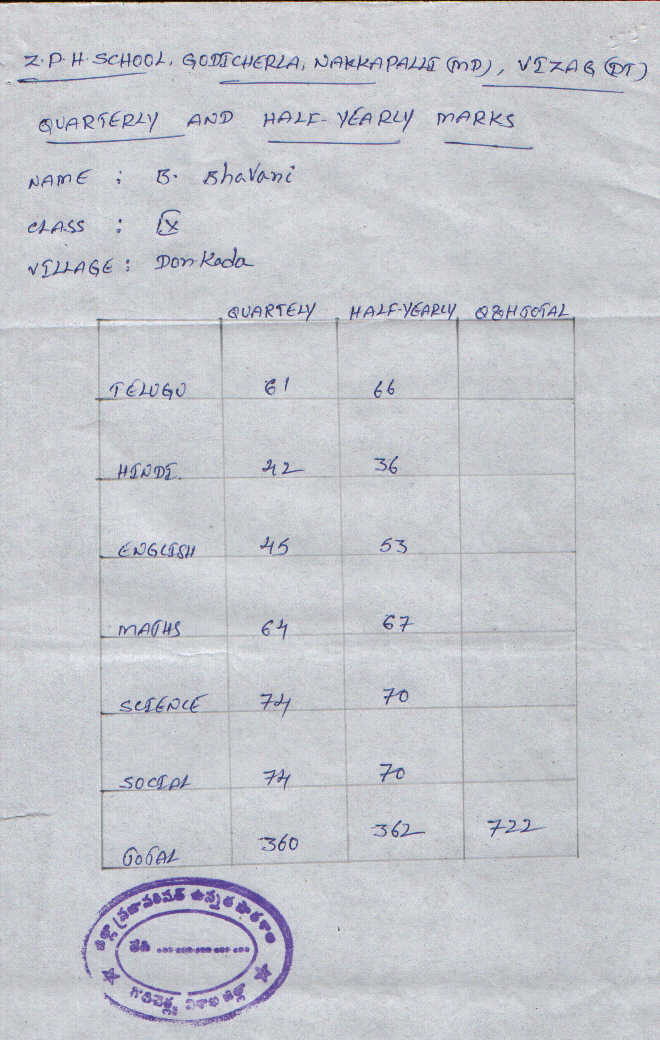 Z.P.H. SCHOOL, GODICHERLA, NAKKAPALLI (MD), VIZAG (DT)
QUARTERLY AND HALF-YEARLY MARKS
NAME : B. Bhavani
CLASS : IX
VILLAGE : Donkada
QUARTELY HALF-YEARLY Q&HTOTAL
TELUGU 61 66
HINDI. 42 36
ENGLISH 45 53
MATHS 64 67
SCIENCE 74 70
SOCIAL 74 70
TOTAL 360 362 722
జిల్లా ప్రజాపరిషత్ ఉన్నత పాఠశాల
గొడిచెర్ల, విశాఖ జిల్లా